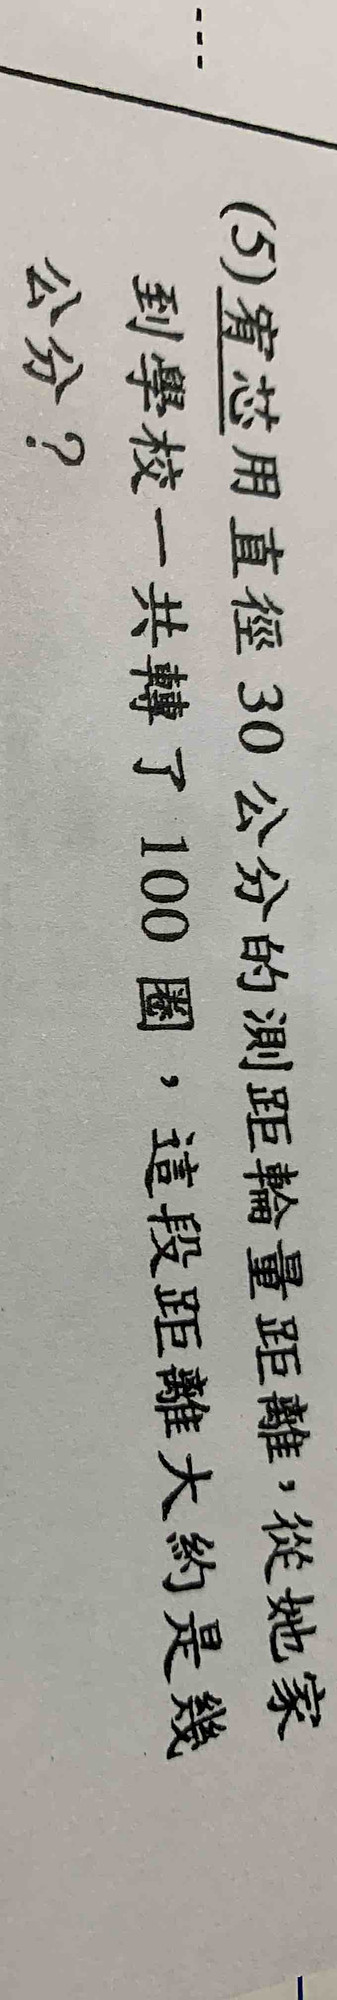 (5)宥芯用直徑 30 公分的測距輪量距離,從她家
到學校一共轉了 100 圈,這段距離大約是幾
公分?